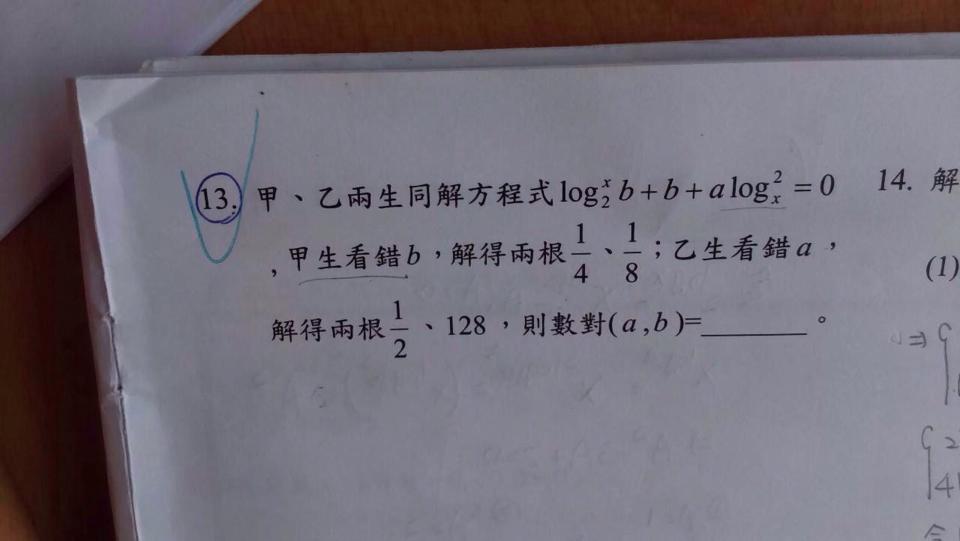 13. 甲、乙兩生同解方程式 log₂ˣ b + b + a logₓ² = 0
, 甲生看錯 b，解得兩根 1/4、1/8；乙生看錯 a，
解得兩根 1/2、128，則數對(a,b)=______。
14. 解
(1)